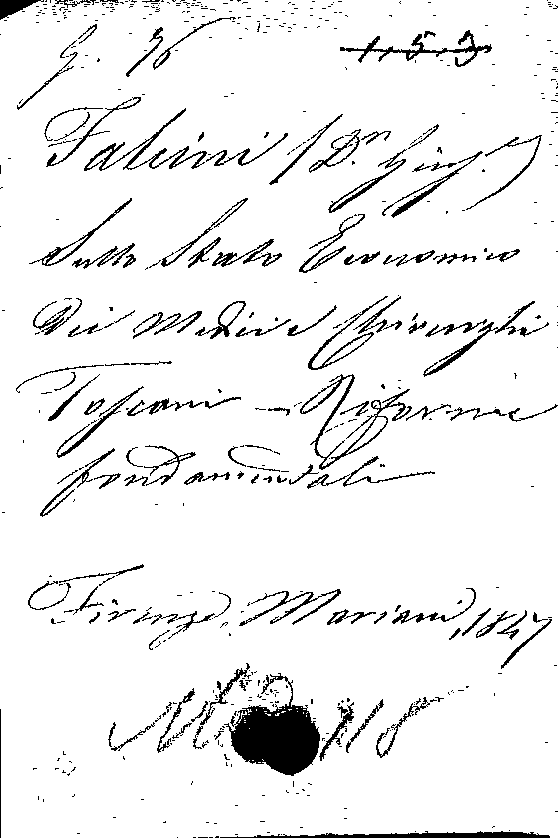 G. 76 1.5.3
Falcini (D.n Giu.)
Sullo Stato Economico
Dei Medici e Chirurghi
Toscani – Riforme
fondamentali
Firenze, Mariani, 1847
918